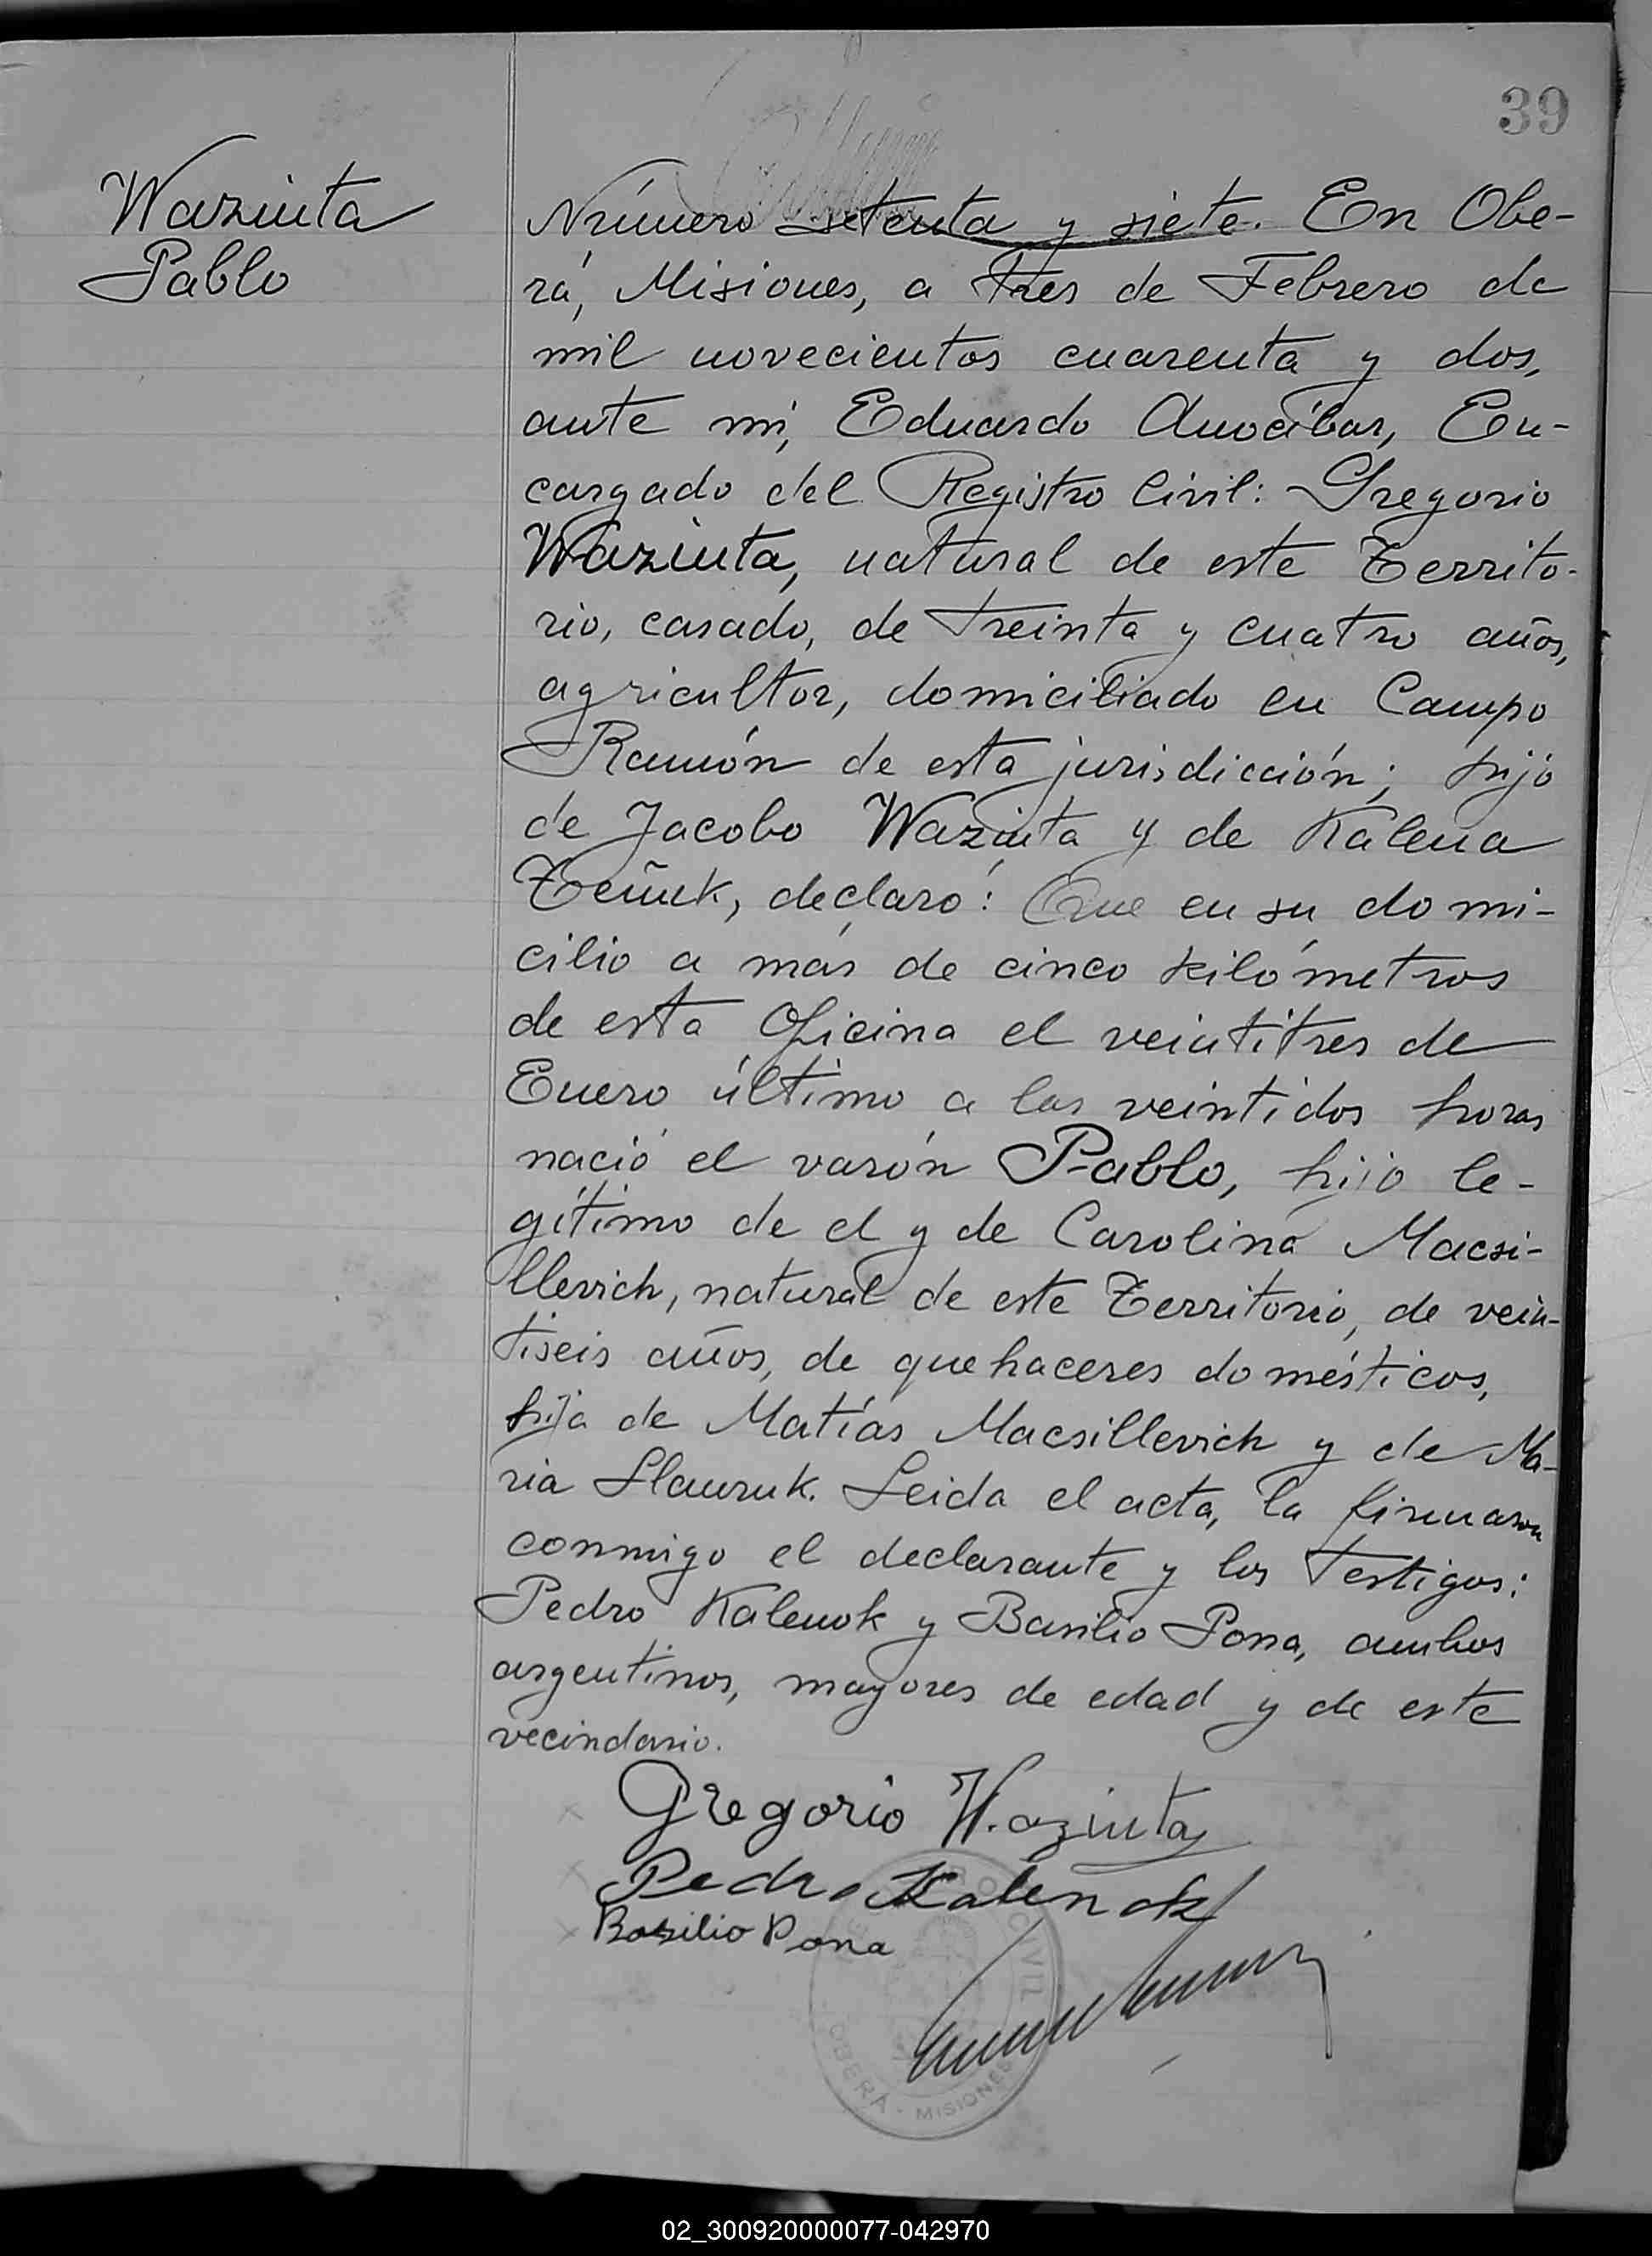 39
Wazinta
Pablo
Número setenta y siete. En Obe-
rá, Misiones, a tres de Febrero de
mil novecientos cuarenta y dos,
ante mi, Eduardo Anocíbar, En-
cargado del Registro Civil: Gregorio
Wazinta, natural de este Territo-
rio, casado, de treinta y cuatro años,
agricultor, domiciliado en Campo
Ramón de esta jurisdicción; hijo
de Jacobo Wazinta y de Kalena
Zeñuk, declaró: Que en su domi-
cilio a más de cinco kilómetros
de esta Oficina el veintitres de
Enero último a las veintidos horas
nació el varón Pablo, hijo le-
gítimo de el y de Carolina Macsi-
llevich, natural de este Territorio, de vein-
tiseis años, de quehaceres domésticos,
hija de Matías Macsillevich y de Ma-
ria Slauzuk. Leida el acta, la firmaron
conmigo el declarante y los testigos:
Pedro Kalenok y Basilio Pona, ambos
argentinos, mayores de edad y de este
vecindario.
Gregorio Wazinta
Pedro Kaleñok
Basilio Pona
CIVIL
OBERÁ - MISIONES
02_300920000077-042970